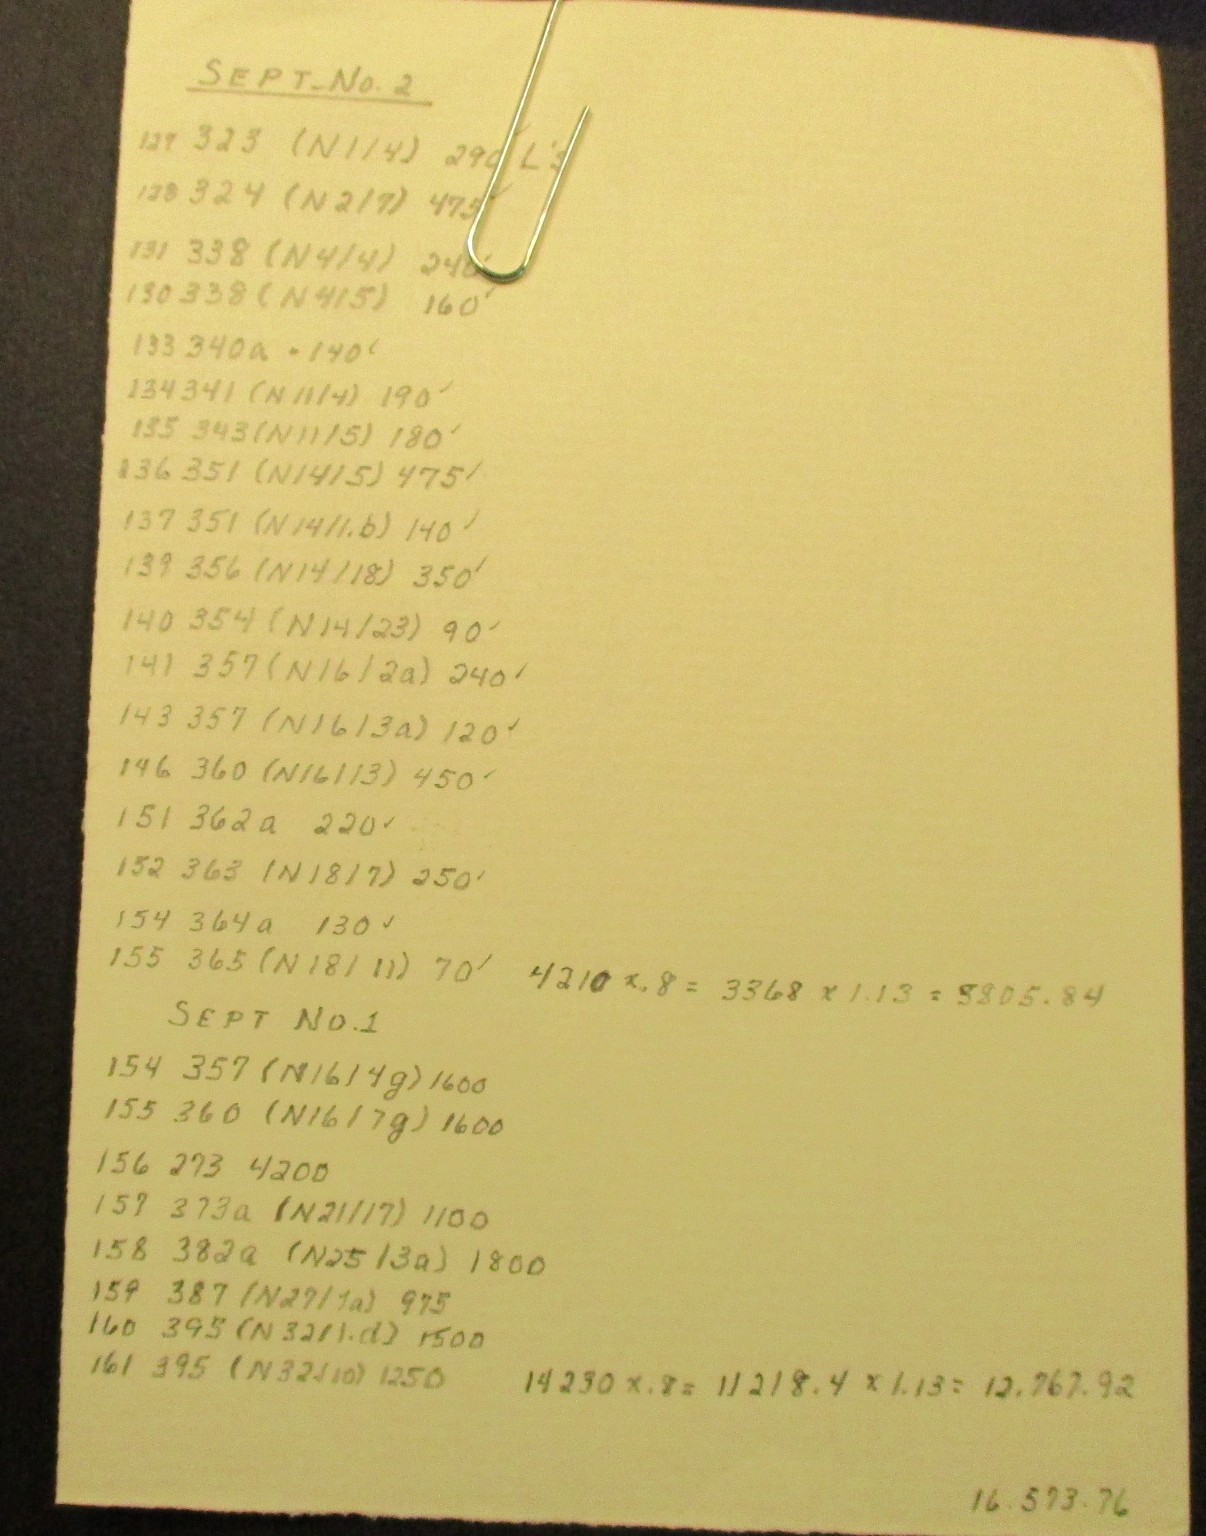 SEPT-No. 2
129 323 (N1/4) 290' L's
128 324 (N2/7) 475'
131 338 (N4/4) 240'
130 338 (N4/5) 160'
133 340a - 140'
134 341 (N11/4) 190'
135 343 (N11/5) 180'
136 351 (N14/5) 475'
137 351 (N14/1.b) 140'
139 356 (N14/18) 350'
140 354 (N14/23) 90'
141 357 (N16/2a) 240'
143 357 (N16/3a) 120'
146 360 (N16/13) 450'
151 362a 220'
152 363 (N18/7) 250'
154 364a 130'
155 365 (N18/11) 70' 4210 x .8 = 3368 x 1.13 = 3805.84
SEPT NO.1
154 357 (N16/4g) 1600
155 360 (N16/7g) 1600
156 273 4200
157 373a (N21/17) 1100
158 382a (N25/3a) 1800
159 387 (N27/1a) 975
160 395 (N32/1.d) 1500
161 395 (N32/10) 1250 14230 x .8 = 11218.4 x 1.13 = 12.767.92
16.573.76